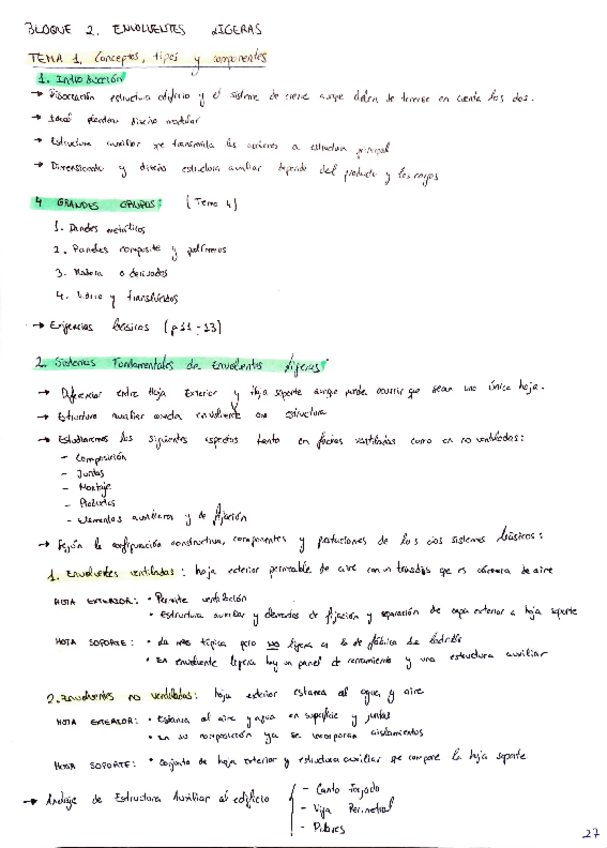 BLOQUE 2. ENVOLVENTES LIGERAS
TEMA 1. Conceptos, tipos y componentes
1. Introducción
→ Disociación estructura edificio y el sistema de cierre aunque deben de tenerse en cuenta los dos.
→ diseño modular
→ Estructura auxiliar que transmita las acciones a estructura principal
→ Dimensionado y diseño estructura auxiliar depende del producto y las cargas
4 GRANDES GRUPOS: (Tema 4)
1. metálicos
2. Paneles composite y polímeros
3. Madera o derivados
4. Vidrio y translúcidos
→ Exigencias básicas (p11-13)
2. Sistemas Fundamentales de Envolventes Ligeras
→ Diferenciar entre Hoja Exterior y Hoja soporte aunque puede ocurrir que sean una única hoja.
→ Estructura auxiliar envolvente con estructura
→ Estudiaremos los siguientes aspectos tanto en fachadas ventiladas como en no ventiladas:
- Composición
- Juntas
- Montaje
- Productos
- Elementos auxiliares y de fijación
→ Según la configuración constructiva, componentes y prestaciones de los dos sistemas básicos:
1. Envolventes ventiladas: hoja exterior permeable de aire con un trasdós que es cámara de aire
HOJA EXTERIOR: • Permite ventilación
• Estructura auxiliar y elementos de fijación y separación de capa exterior a hoja soporte
HOJA SOPORTE: • La más típica pero NO ligera es la de fábrica de ladrillo
• En envolvente ligera hay un panel de cerramiento y una estructura auxiliar
2. Envolventes no ventiladas: hoja exterior estanca al agua y aire
HOJA EXTERIOR: • Estanca al aire y agua en superficie y juntas
• En su composición ya se incorporan aislamientos
HOJA SOPORTE: • Conjunto de hoja exterior y estructura auxiliar que compone la hoja soporte
→ Anclaje de Estructura Auxiliar al edificio
- Canto Forjado
- Viga Perimetral
- Pilares
27